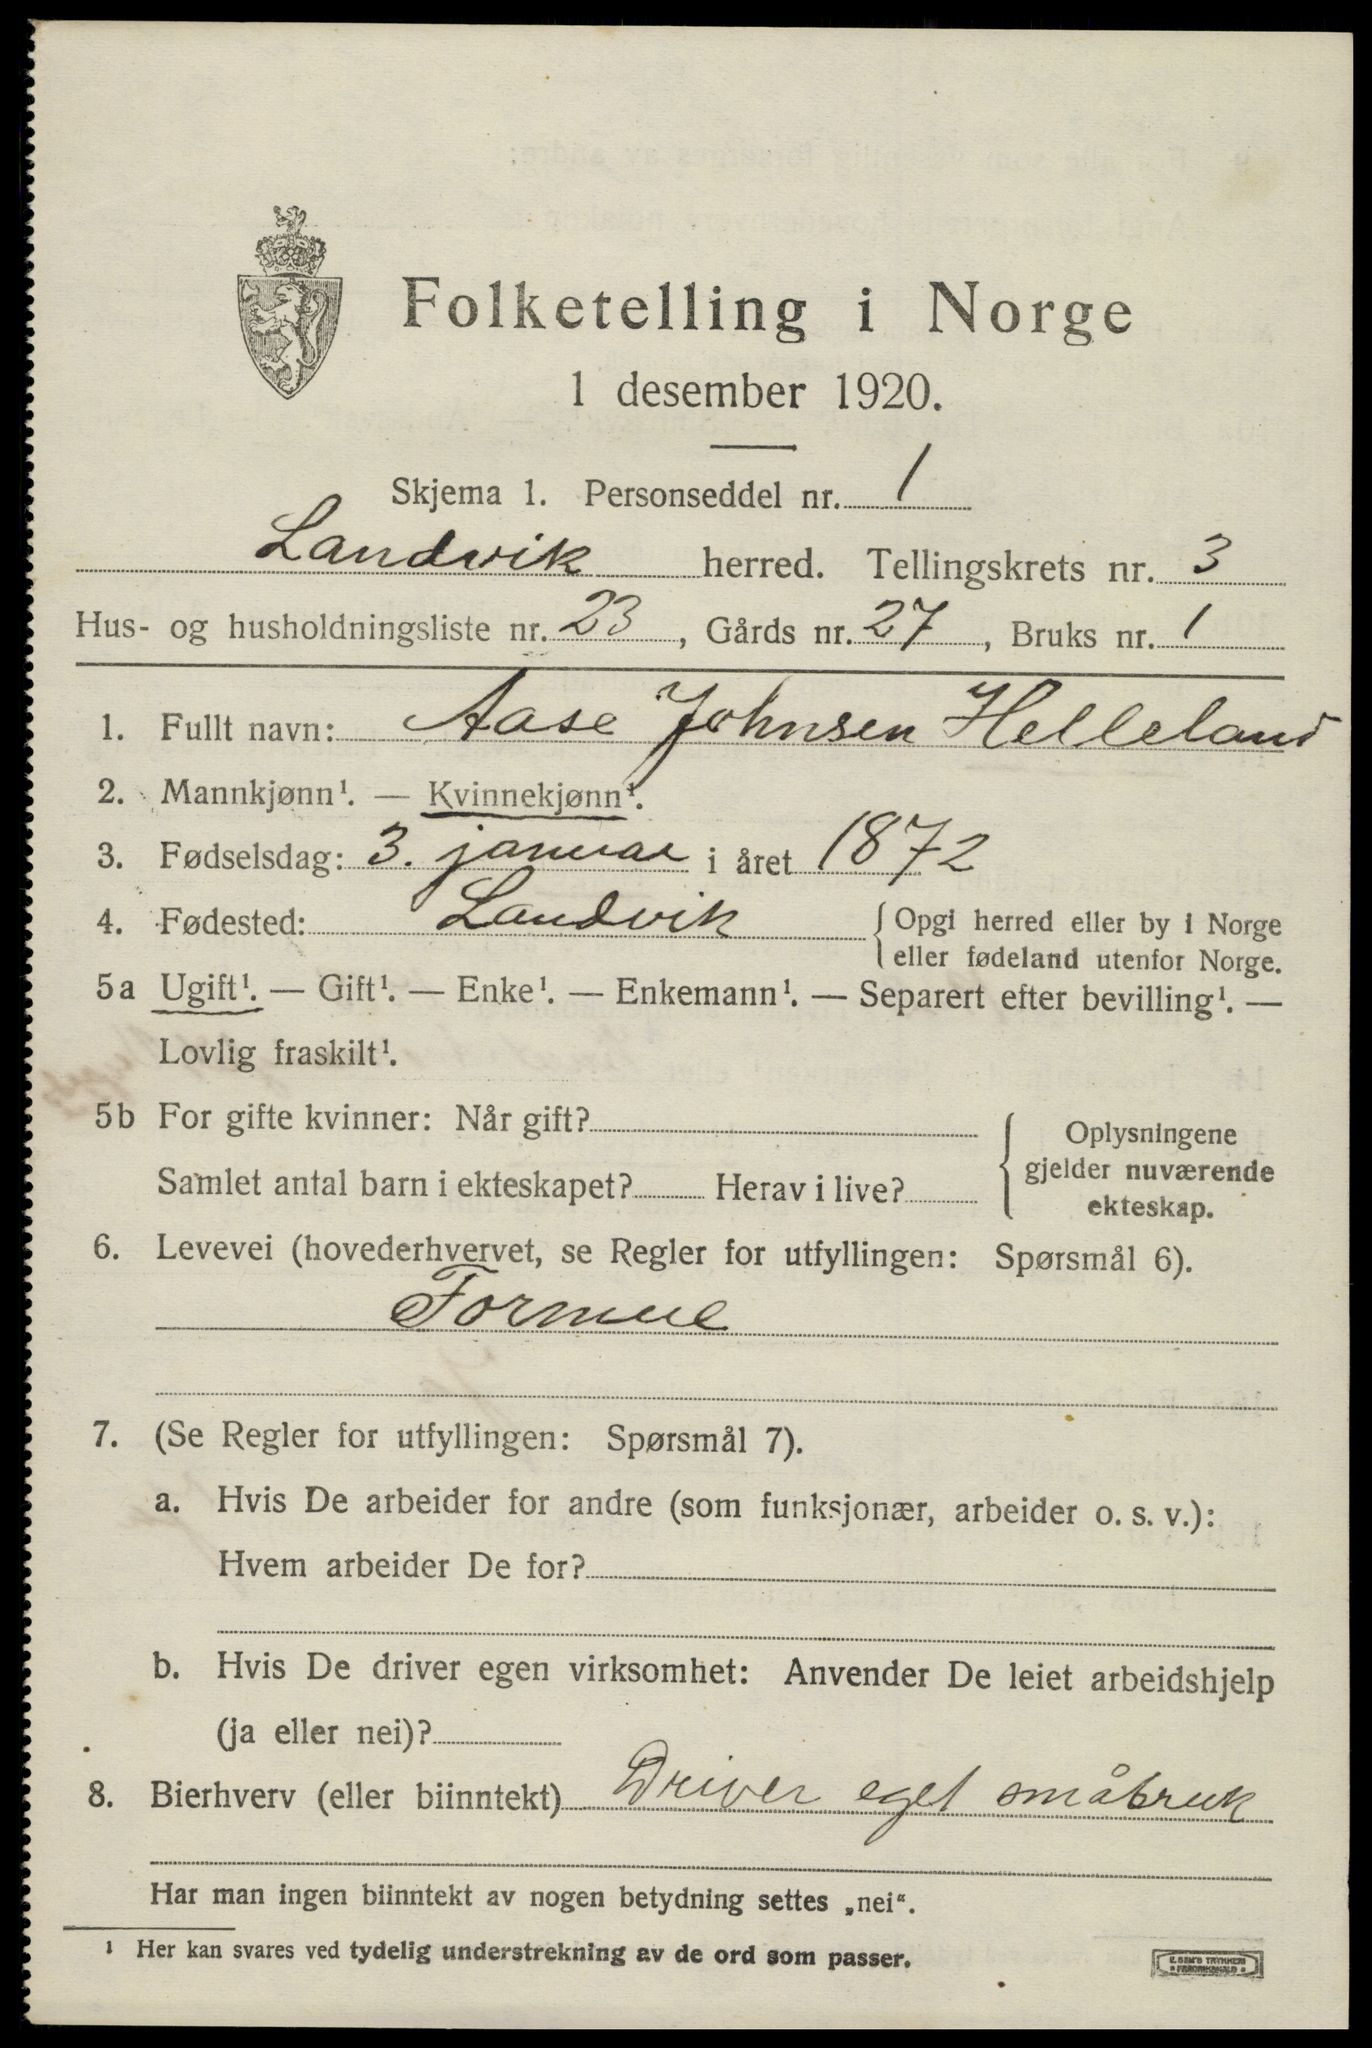 Folketelling i Norge
1 desember 1920.
Skjema 1. Personseddel nr. 1
Landvik herred. Tellingskrets nr. 3
Hus- og husholdningsliste nr. 23, Gårds nr. 27, Bruks nr. 1
1. Fullt navn: Aase Johnsen Helleland
2. Mannkjønn¹. — Kvinnekjønn¹.
3. Fødselsdag: 3. januar i året 1872
4. Fødested: Landvik { Opgi herred eller by i Norge
eller fødeland utenfor Norge.
5a Ugift¹. — Gift¹. — Enke¹. — Enkemann¹. — Separert efter bevilling¹. —
Lovlig fraskilt¹.
5b For gifte kvinner: Når gift?
Samlet antal barn i ekteskapet? Herav i live?
Oplysningene
gjelder nuværende
ekteskap.
6. Levevei (hovederhvervet, se Regler for utfyllingen: Spørsmål 6).
Formue
7. (Se Regler for utfyllingen: Spørsmål 7).
a. Hvis De arbeider for andre (som funksjonær, arbeider o. s. v.):
Hvem arbeider De for?
b. Hvis De driver egen virksomhet: Anvender De leiet arbeidshjelp
(ja eller nei)?
8. Bierhverv (eller biinntekt) Driver eget småbruk
Har man ingen biinntekt av nogen betydning settes „nei“.
¹ Her kan svares ved tydelig understrekning av de ord som passer.